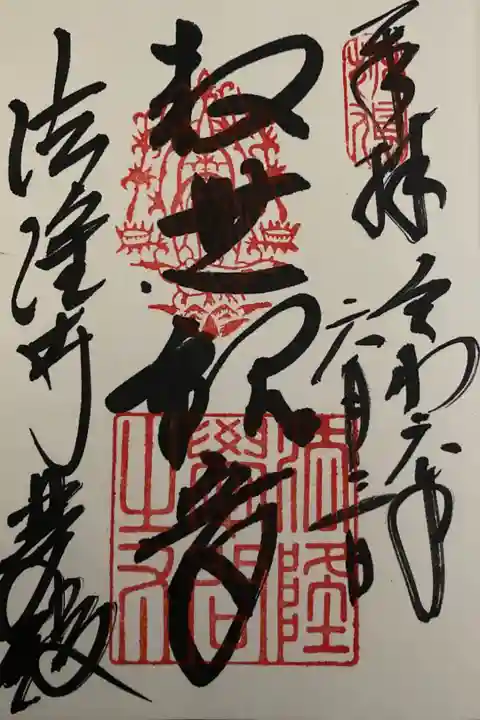 奉拝
令和六年
六月三日
救世観音
法隆寺夢殿
法隆
學問
之印